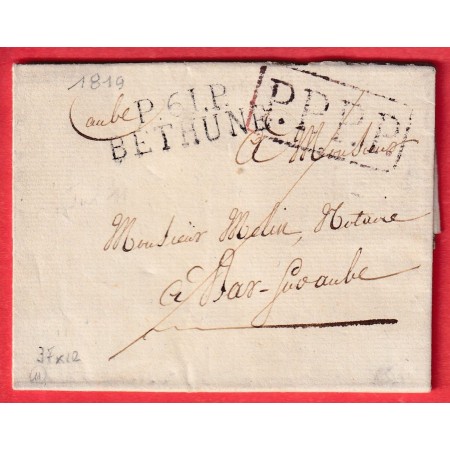 1819
(aube
P.61.P.
BETHUNE
P.P.P.P.
à Monsieur
Monsieur Melin, Notaire
à Bar-sur-aube
37x12
(11)